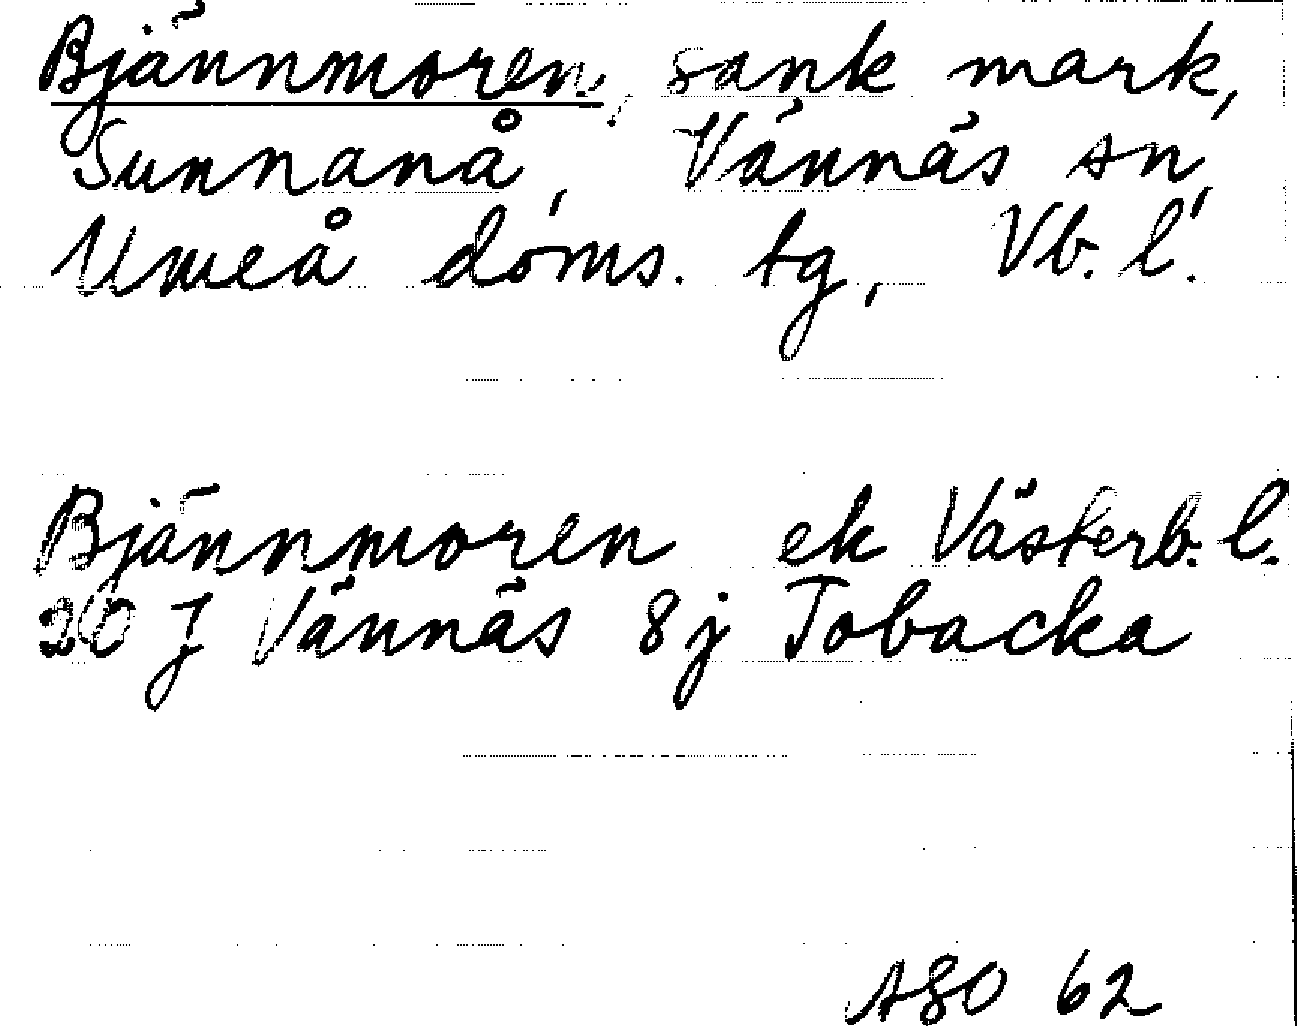 Bjännmoren, sank mark,
Sunnanå, Vännäs sn,
Umeå doms. tg, Vb. l.
Bjännmoren ek Västerb. l.
20 J Vännäs 8j Tobacka
ASO 62